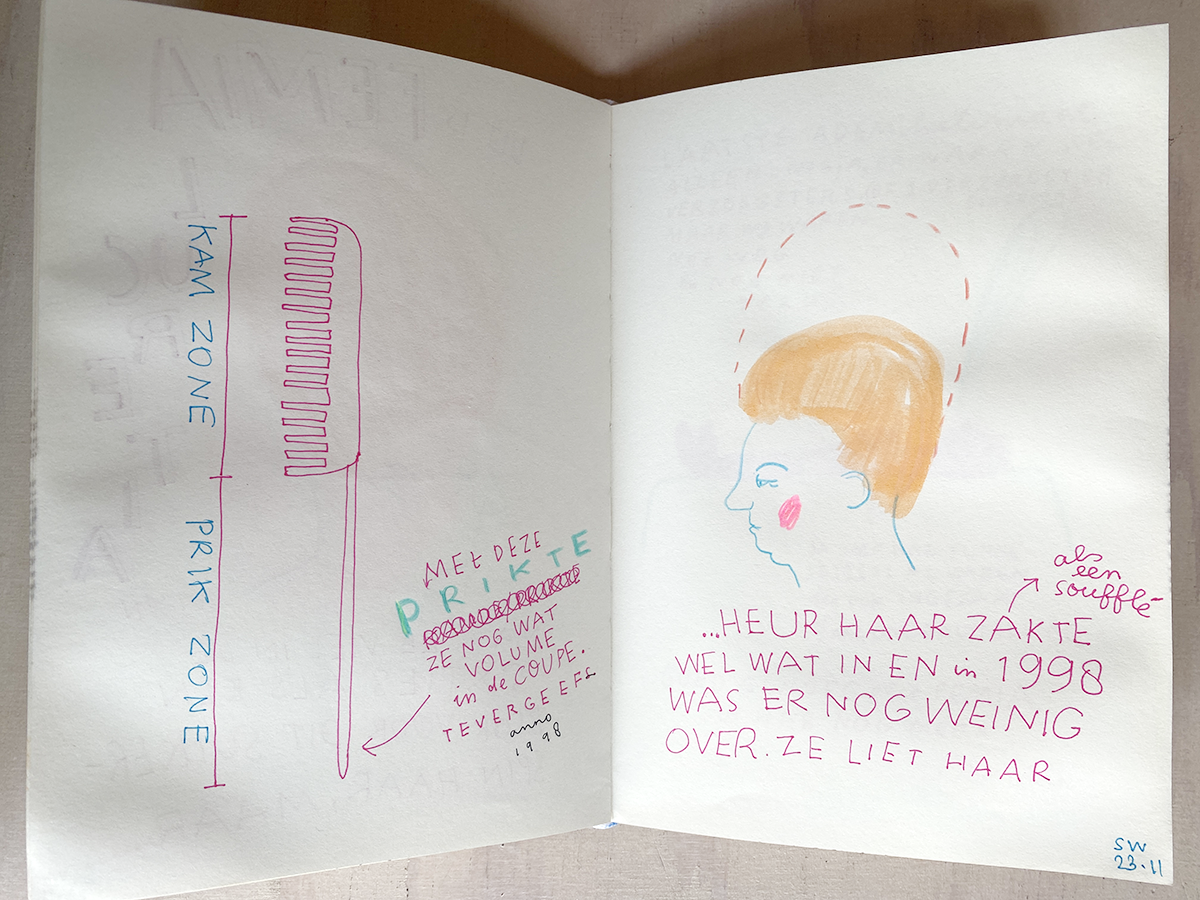 KAM ZONE
PRIK ZONE
MEt DEZE
PRIKTE
ZE NOG WAT
VOLUME
in de COUPE.
TEVERGEEFS
anno
1998
als
een
soufflé
...HEUR HAAR ZAKTE
WEL WAT IN EN in 1998
WAS ER NOG WEINIG
OVER. ZE LIET HAAR
SW
23.11